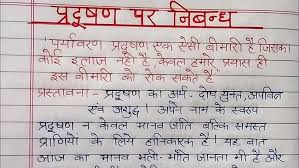 प्रदूषण पर निबन्ध
"पर्यावरण प्रदूषण एक ऐसी बीमारी हैं जिसका
कोई इलाज नहीं हैं, केवल हमारे प्रयास ही
इस बीमारी को रोक सकते हैं"
प्रस्तावना - प्रदूषण का अर्थ - दोष युक्त, अपवित्र
एवं अशुद्ध। अपने नाम के स्वरूप
प्रदूषण न केवल मानव जाति बल्कि समस्त
प्राणियों के लिए हानिकारक हैं। यह बात
आज का मानव भली-भाँति जानता भी हैं और